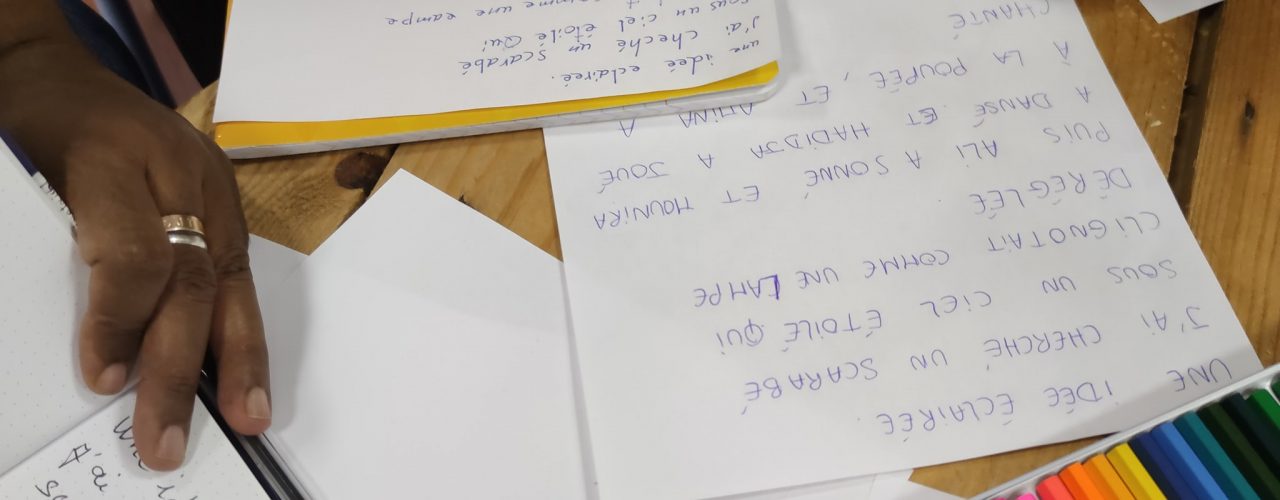 UNE IDÉE ÉCLAIRÉE.
J'AI CHERCHÉ UN SCARABÉ
SOUS UN CIEL ÉTOILÉ QUI
CLIGNOTAIT COMME UNE LAMPE
DÉRÉGLÉE.
PUIS ALI A SONNÉ ET MOUNIRA
A DANSÉ ET HADIDJA A JOUÉ
À LA POUPÉE, ET AMINA A
CHANTÉ
une idée eclaireé.
J'ai cheché un scarabé
sous un ciel étoilé Qui
comme une eampe
J'ai